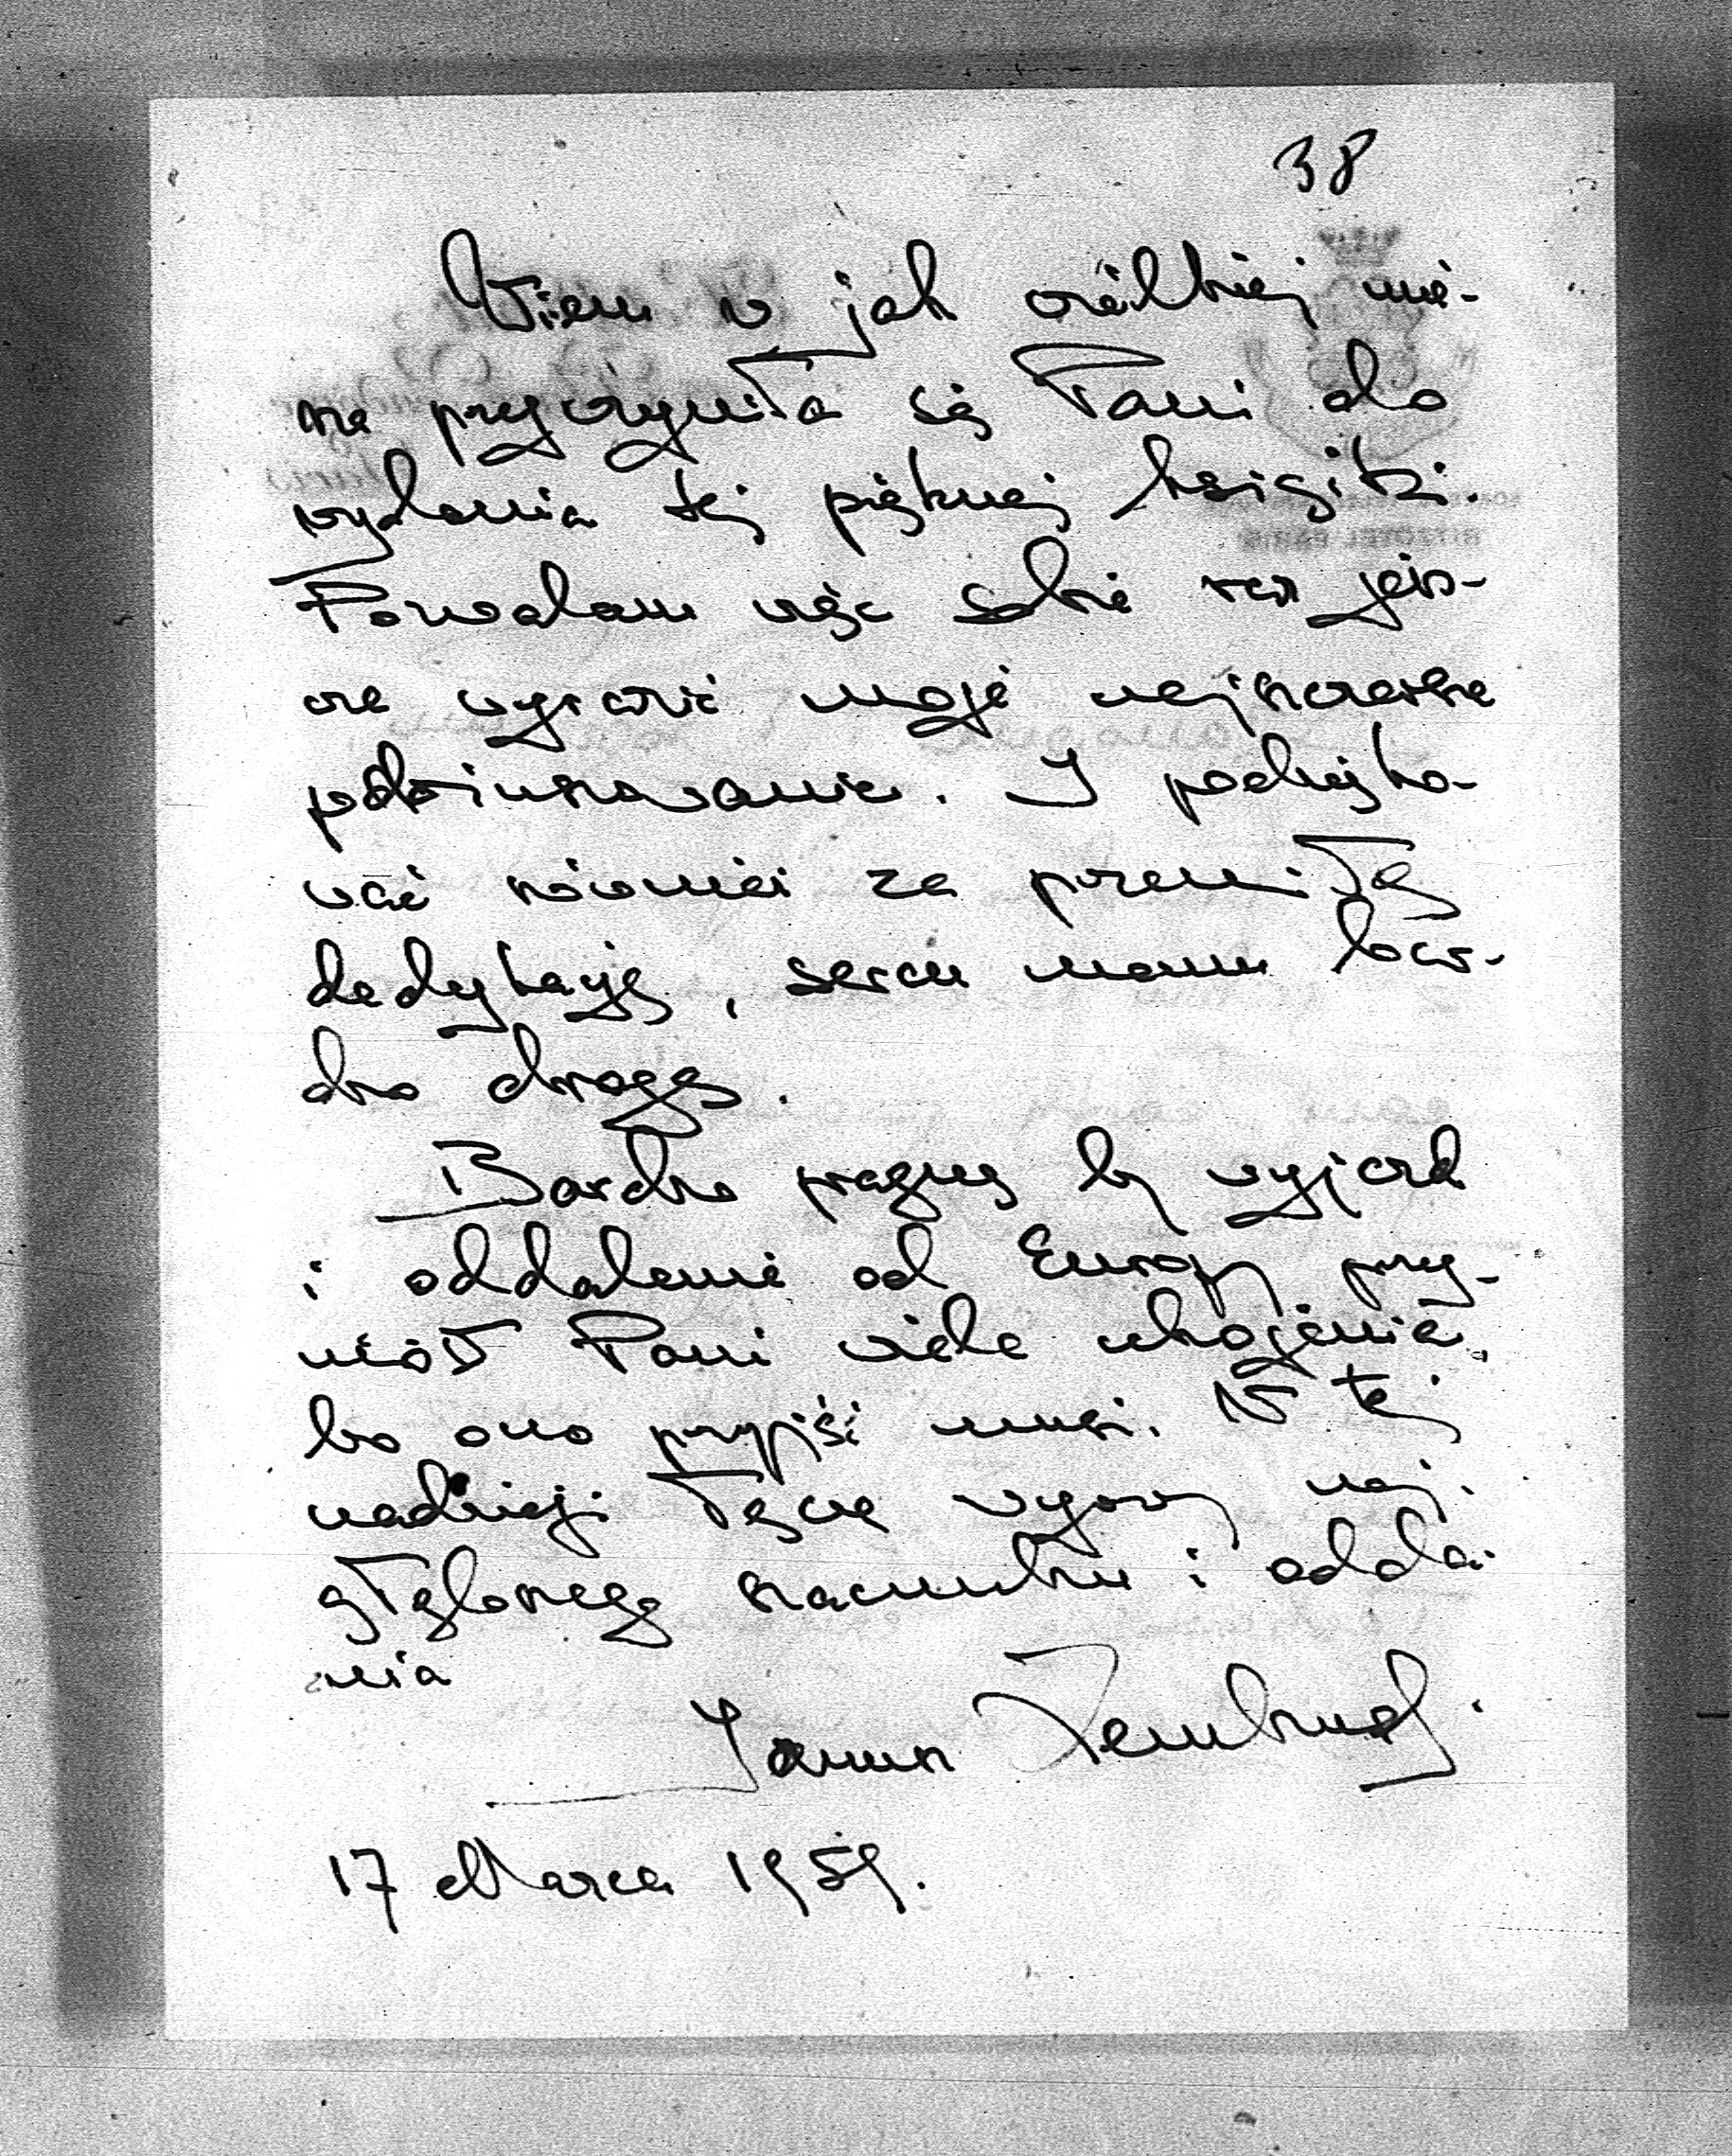 38
Wiem w jak wielkiej mie-
rze przyczyniła się Pani do
wydania tej pięknej książki.
Pozwalam więc sobie raz jesz-
cze wyrazić moje najszczersze
podziękowanie. I podzięko-
wać również za przemiłą
dedykację, sercu memu bar-
dzo drogą.
Bardzo pragnę by wyjazd
i oddalenie od Europy przy-
niósł Pani wiele ukojenia,
bo ono przyjść musi. W tej
nadzieji łączę wyrazy naj-
głębszego szacunku i odda-
nia
17 Marca 1959.